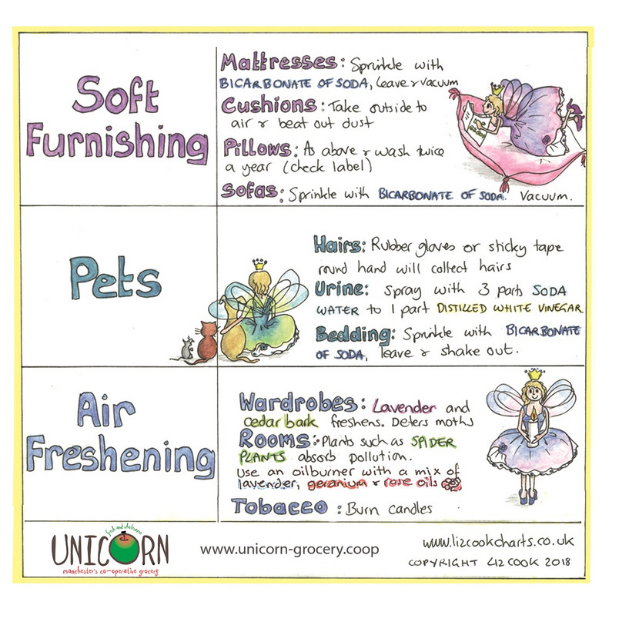 Soft
Furnishing
Mattresses: Sprinkle with
BICARBONATE OF SODA, leave & vacuum
Cushions: Take outside to
air & beat out dust
Pillows: As above & wash twice
a year (check label)
Sofas: Sprinkle with BICARBONATE OF SODA. Vacuum.
Pets
Hairs: Rubber gloves or sticky tape
round hand will collect hairs
Urine: Spray with 3 parts SODA
WATER to 1 part DISTILLED WHITE VINEGAR
Bedding: Sprinkle with BICARBONATE
OF SODA, leave & shake out.
Air
Freshening
Wardrobes: Lavender and
cedar bark freshens. Deters moths
Rooms: Plants such as SPIDER
PLANTS absorb pollution.
Use an oilburner with a mix of
lavender, geranium & rose oils
Tobacco: Burn candles
UNICORN
manchester's co-operative grocery
www.unicorn-grocery.coop
www.lizcookcharts.co.uk
COPYRIGHT LIZ COOK 2018